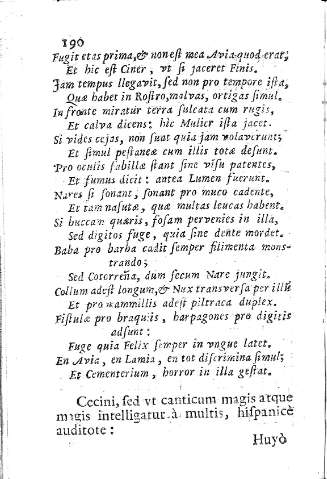 190
Fugit etas prima, & non est mea Avia quod erat;
Et hic est Ciner, vt si jaceret Finis.
Jam tempus llegavit, sed non pro tempore ista,
Quæ habet in Rostro, malvas, ortigas simul.
In fronte miratur terra sulcata cum rugis,
Et calva dicens: hic Mulier ista jacet.
Si vides cejas, non sunt quia jam volaverunt;
Et simul pestaneæ cum illis totæ desunt.
Pro oculis sabillæ stant sine visu patentes,
Et fumus dicit: antea Lumen fuerunt.
Nares si sonant, sonant pro muco cadente,
Et tam nasutæ, quæ multas leucas habent.
Si buccam quæris, fosam pervenies in illa,
Sed digitos fuge, quia sine dente mordet.
Baba pro barba cadit semper filimenta mons-
trando;
Sed Cotorreña, dum secum Nare jungit.
Collum adest longum, & Nux transversa per illũ
Et pro mammillis adest piltraca duplex.
Fistulæ pro braquiis, harpagones pro digitis
adsunt:
Fuge quia Felix semper in vngue latet.
En Avia, en Lamia, en tot discrimina simul;
Et Cementerium, horror in illa gestat.
Cecini, sed vt canticum magis atque
magis intelligatur à multis, hispanicè
auditote:
Huyò